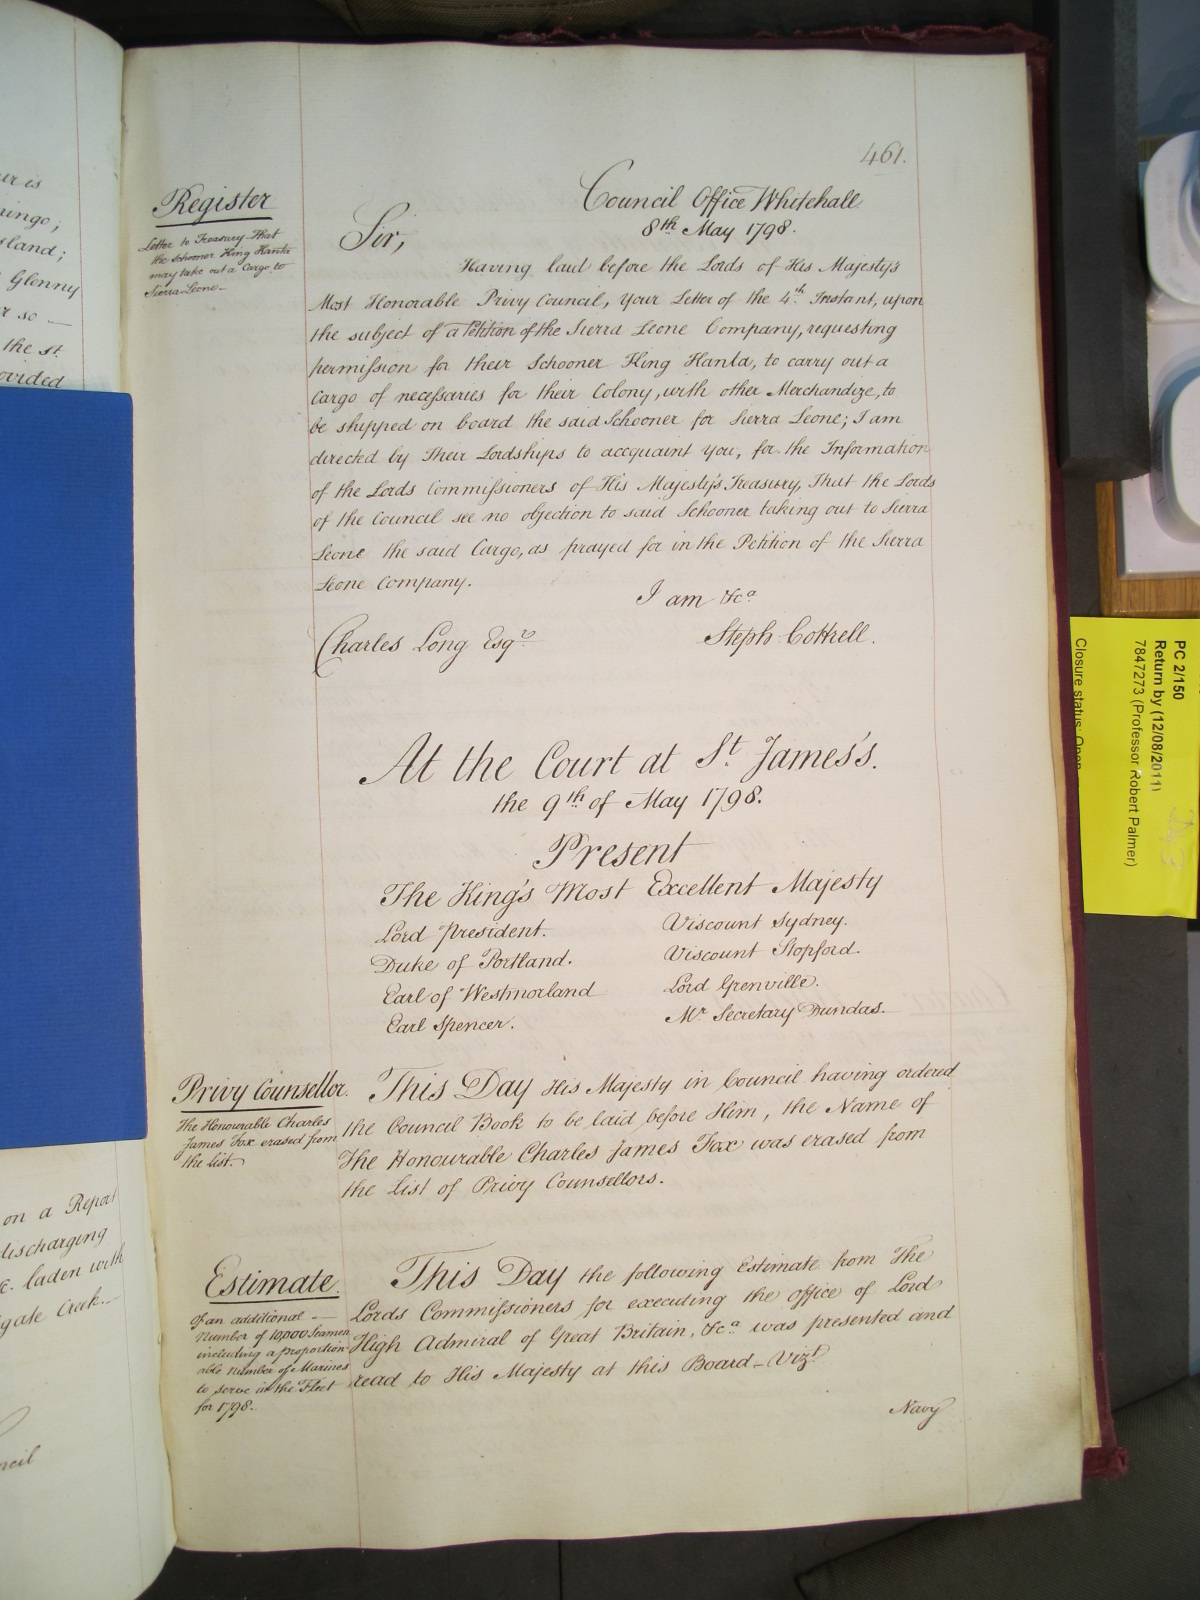 461.
Council Office Whitehall
8th May 1798.
Register
Letter to Treasury That
the Schooner King Hanta
may take out a Cargo to
Sierra Leone_
Sir,
Having laid before the Lords of His Majesty's
Most Honorable Privy Council, your Letter of the 4th Instant, upon
the subject of a Petition of the Sierra Leone Company, requesting
permission for their Schooner King Hanta, to carry out a
Cargo of necessaries for their Colony, with other Merchandize, to
be shipped on board the said Schooner for Sierra Leone; I am
directed by Their Lordships to accquaint you, for the Information
of the Lords Commissioners of His Majesty's Treasury, That the Lords
of the Council see no objection to said Schooner taking out to Sierra
Leone the said Cargo, as prayed for in the Petition of the Sierra
Leone Company.
I am &ca
Charles Long Esqr
Steph. Cottrell.
At the Court at St James's.
the 9th of May 1798.
Present
The King's Most Excellent Majesty
Lord President.
Viscount Sydney.
Duke of Portland.
Viscount Stopford.
Earl of Westmorland
Lord Grenville.
Earl Spencer.
Mr Secretary Dundas.
Privy Counsellor.
The Honourable Charles
James Fox erased from
the list.
This Day His Majesty in Council having ordered
the Council Book to be laid before Him, the Name of
The Honourable Charles James Fox was erased from
the List of Privy Counsellors.
Estimate.
Of an additional
Number of 10,000 Seamen
including a proportion
able number of Marines
to serve in the Fleet
for 1798.
This Day the following Estimate from The
Lords Commissioners for executing the office of Lord
High Admiral of Great Britain, &ca was presented and
read to His Majesty at this Board_ Vizt
Navy
sland;
Glenny
so —
the St.
ovided
on a Report
discharging
laden with
gate Creek
PC 2/150
Return by (12/08/2011)
7847273 (Professor Robert Palmer)
Closure status: Open